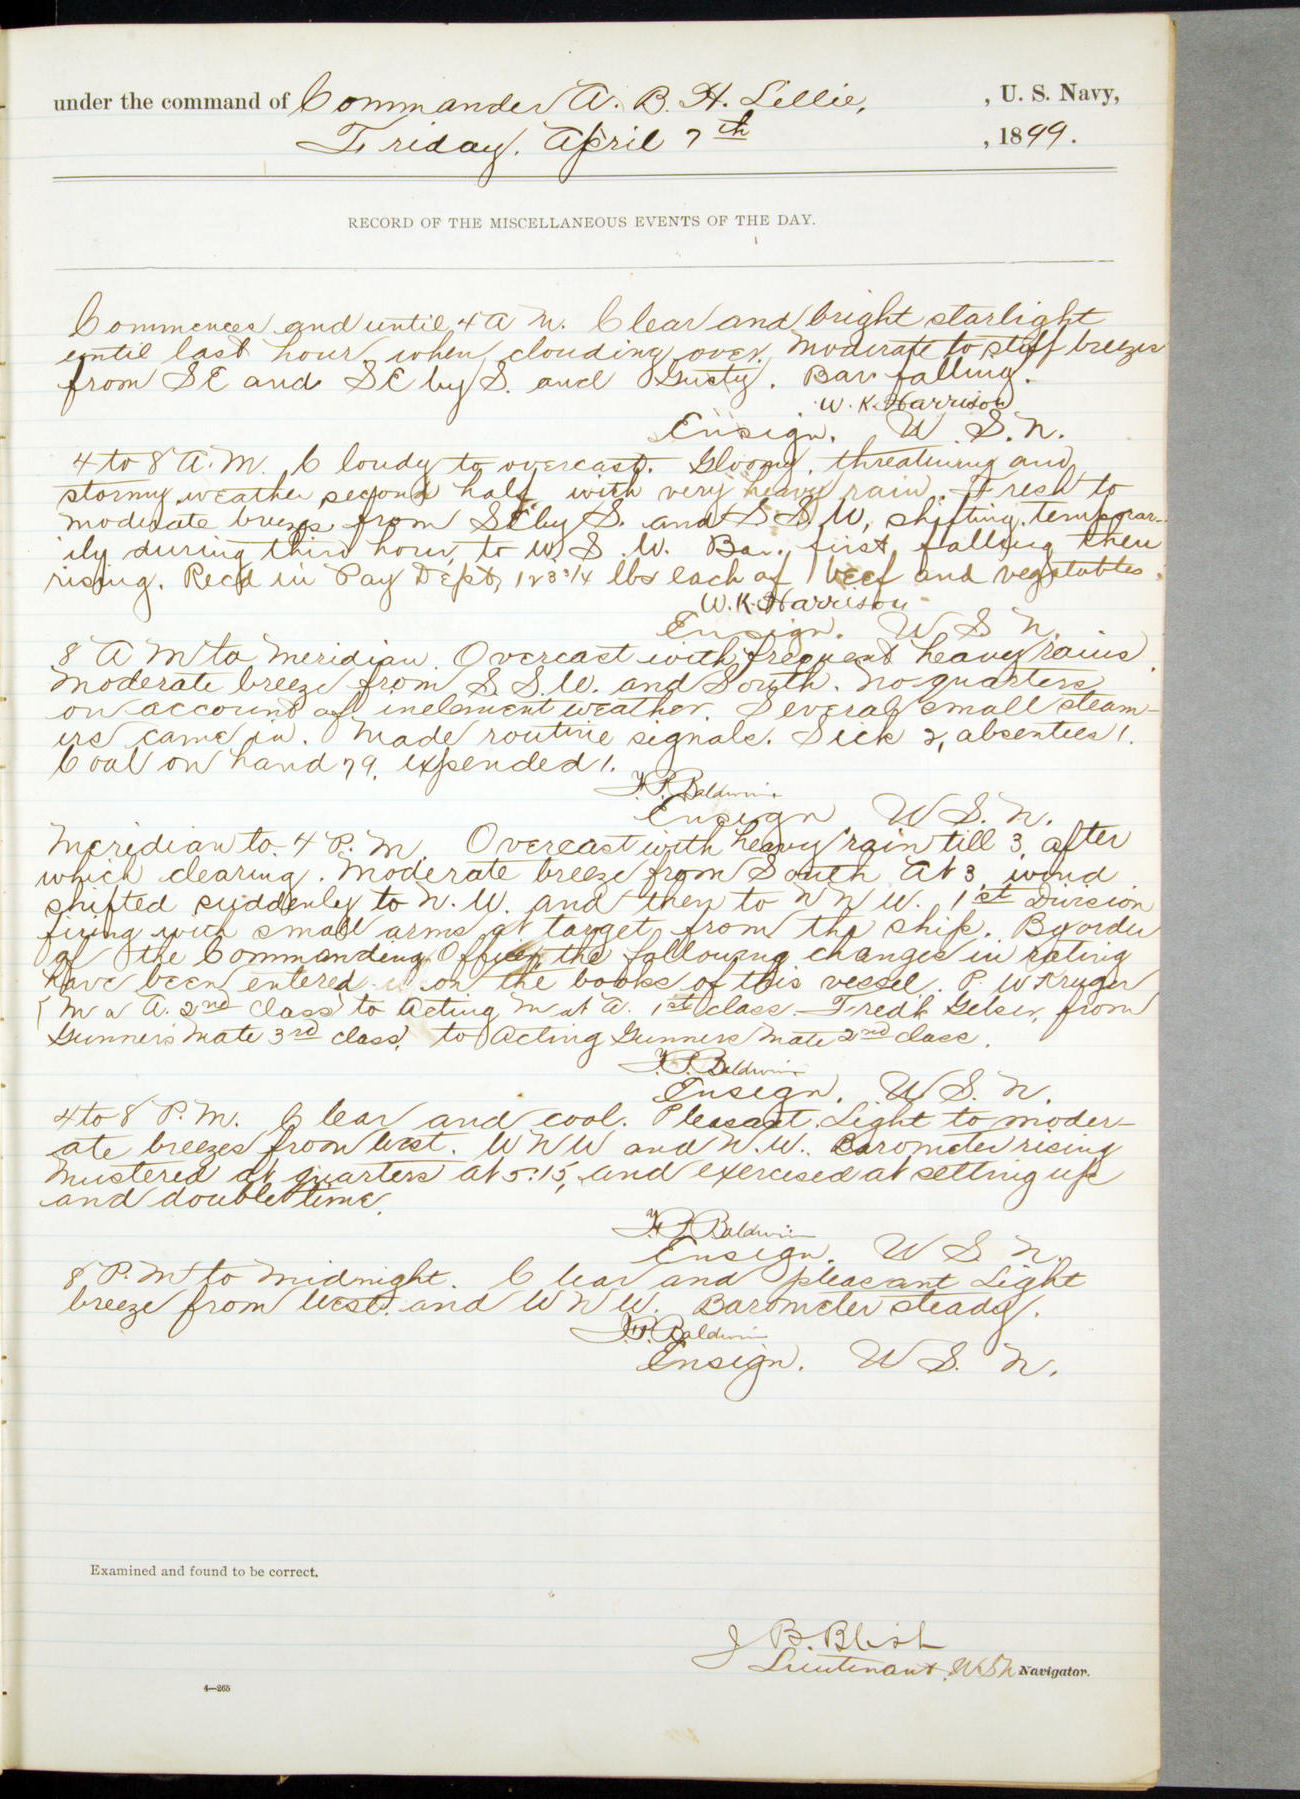 under the command of Commander A. B. H. Lillie, , U. S. Navy,
Friday, April 7th , 1899.
RECORD OF THE MISCELLANEOUS EVENTS OF THE DAY.
Commences and until 4 A M. Clear and bright starlight
until last hour when clouding over. Moderate to stiff breezes
from SE and SE by S. and Gusty. Bar. falling.
W. K. Harrison
Ensign. U. S. N.
4 to 8 A. M. Cloudy to overcast. Gloomy, threatening and
stormy weather second half with very heavy rain. Fresh to
moderate breezes from SE by S. and S.S.W, shifting temporar-
ily during third hour to W. S. W. Bar. first falling then
rising. Rec'd in Pay Dept, 123 3/4 lbs each of beef and vegetables.
W. K. Harrison
Ensign. U S N.
8 A M to Meridian. Overcast with frequent heavy rains.
Moderate breeze from S. S. W. and South. No quarters
on account of inclement weather. Several small steam-
ers came in. Made routine signals. Sick 2, absentees 1.
Coal on hand 79, expended 1.
F. P. Baldwin
Ensign U. S. N.
Meridian to 4 P. M. Overcast with heavy rain till 3, after
which clearing. Moderate breeze from South. At 3, wind
shifted suddenly to N. W. and then to W N W. 1st Division
firing with small arms at target from the ship. By order
of the Commanding Officer, the following changes in rating
have been entered on the books of this vessel. P. W Kruger
M a A. 2nd class to Acting M at A. 1st class. Fredk from
Gunner's Mate 3rd class, to Acting Gunners Mate 2nd class.
F. P. Baldwin
Ensign. U. S. N.
4 to 8 P. M. Clear and cool. Pleasant. Light to moder-
ate breezes from West. W N W and N. W. Barometer rising
Mustered at quarters at 5:15, and exercised at setting up
and double time.
F. P. Baldwin
Ensign. U S N.
8 P. M to Midnight. Clear and pleasant Light
breeze from West. and W N W. Barometer steady.
F. P. Baldwin
Ensign. U S. N.
Examined and found to be correct.
J B. Blish
Lieutenant, U.S.N Navigator.
4—265